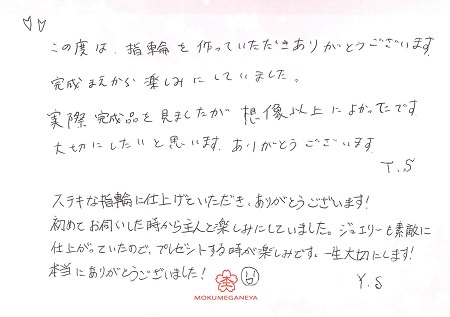 この度は、指輪を作っていただきありがとうございます。
完成まえから楽しみにしていました。
実際完成品を見ましたが想像以上によかったです
大切にしたいと思います。ありがとうございます。
T.S
ステキな指輪に仕上げていただき、ありがとうございます!
初めてお伺いした時から主人と楽しみにしていました。ジュエリーも素敵に
仕上がっていたので、プレゼントする時が楽しみです。一生大切にします!
本当にありがとうございました!
Y.S
MOKUMEGANEYA